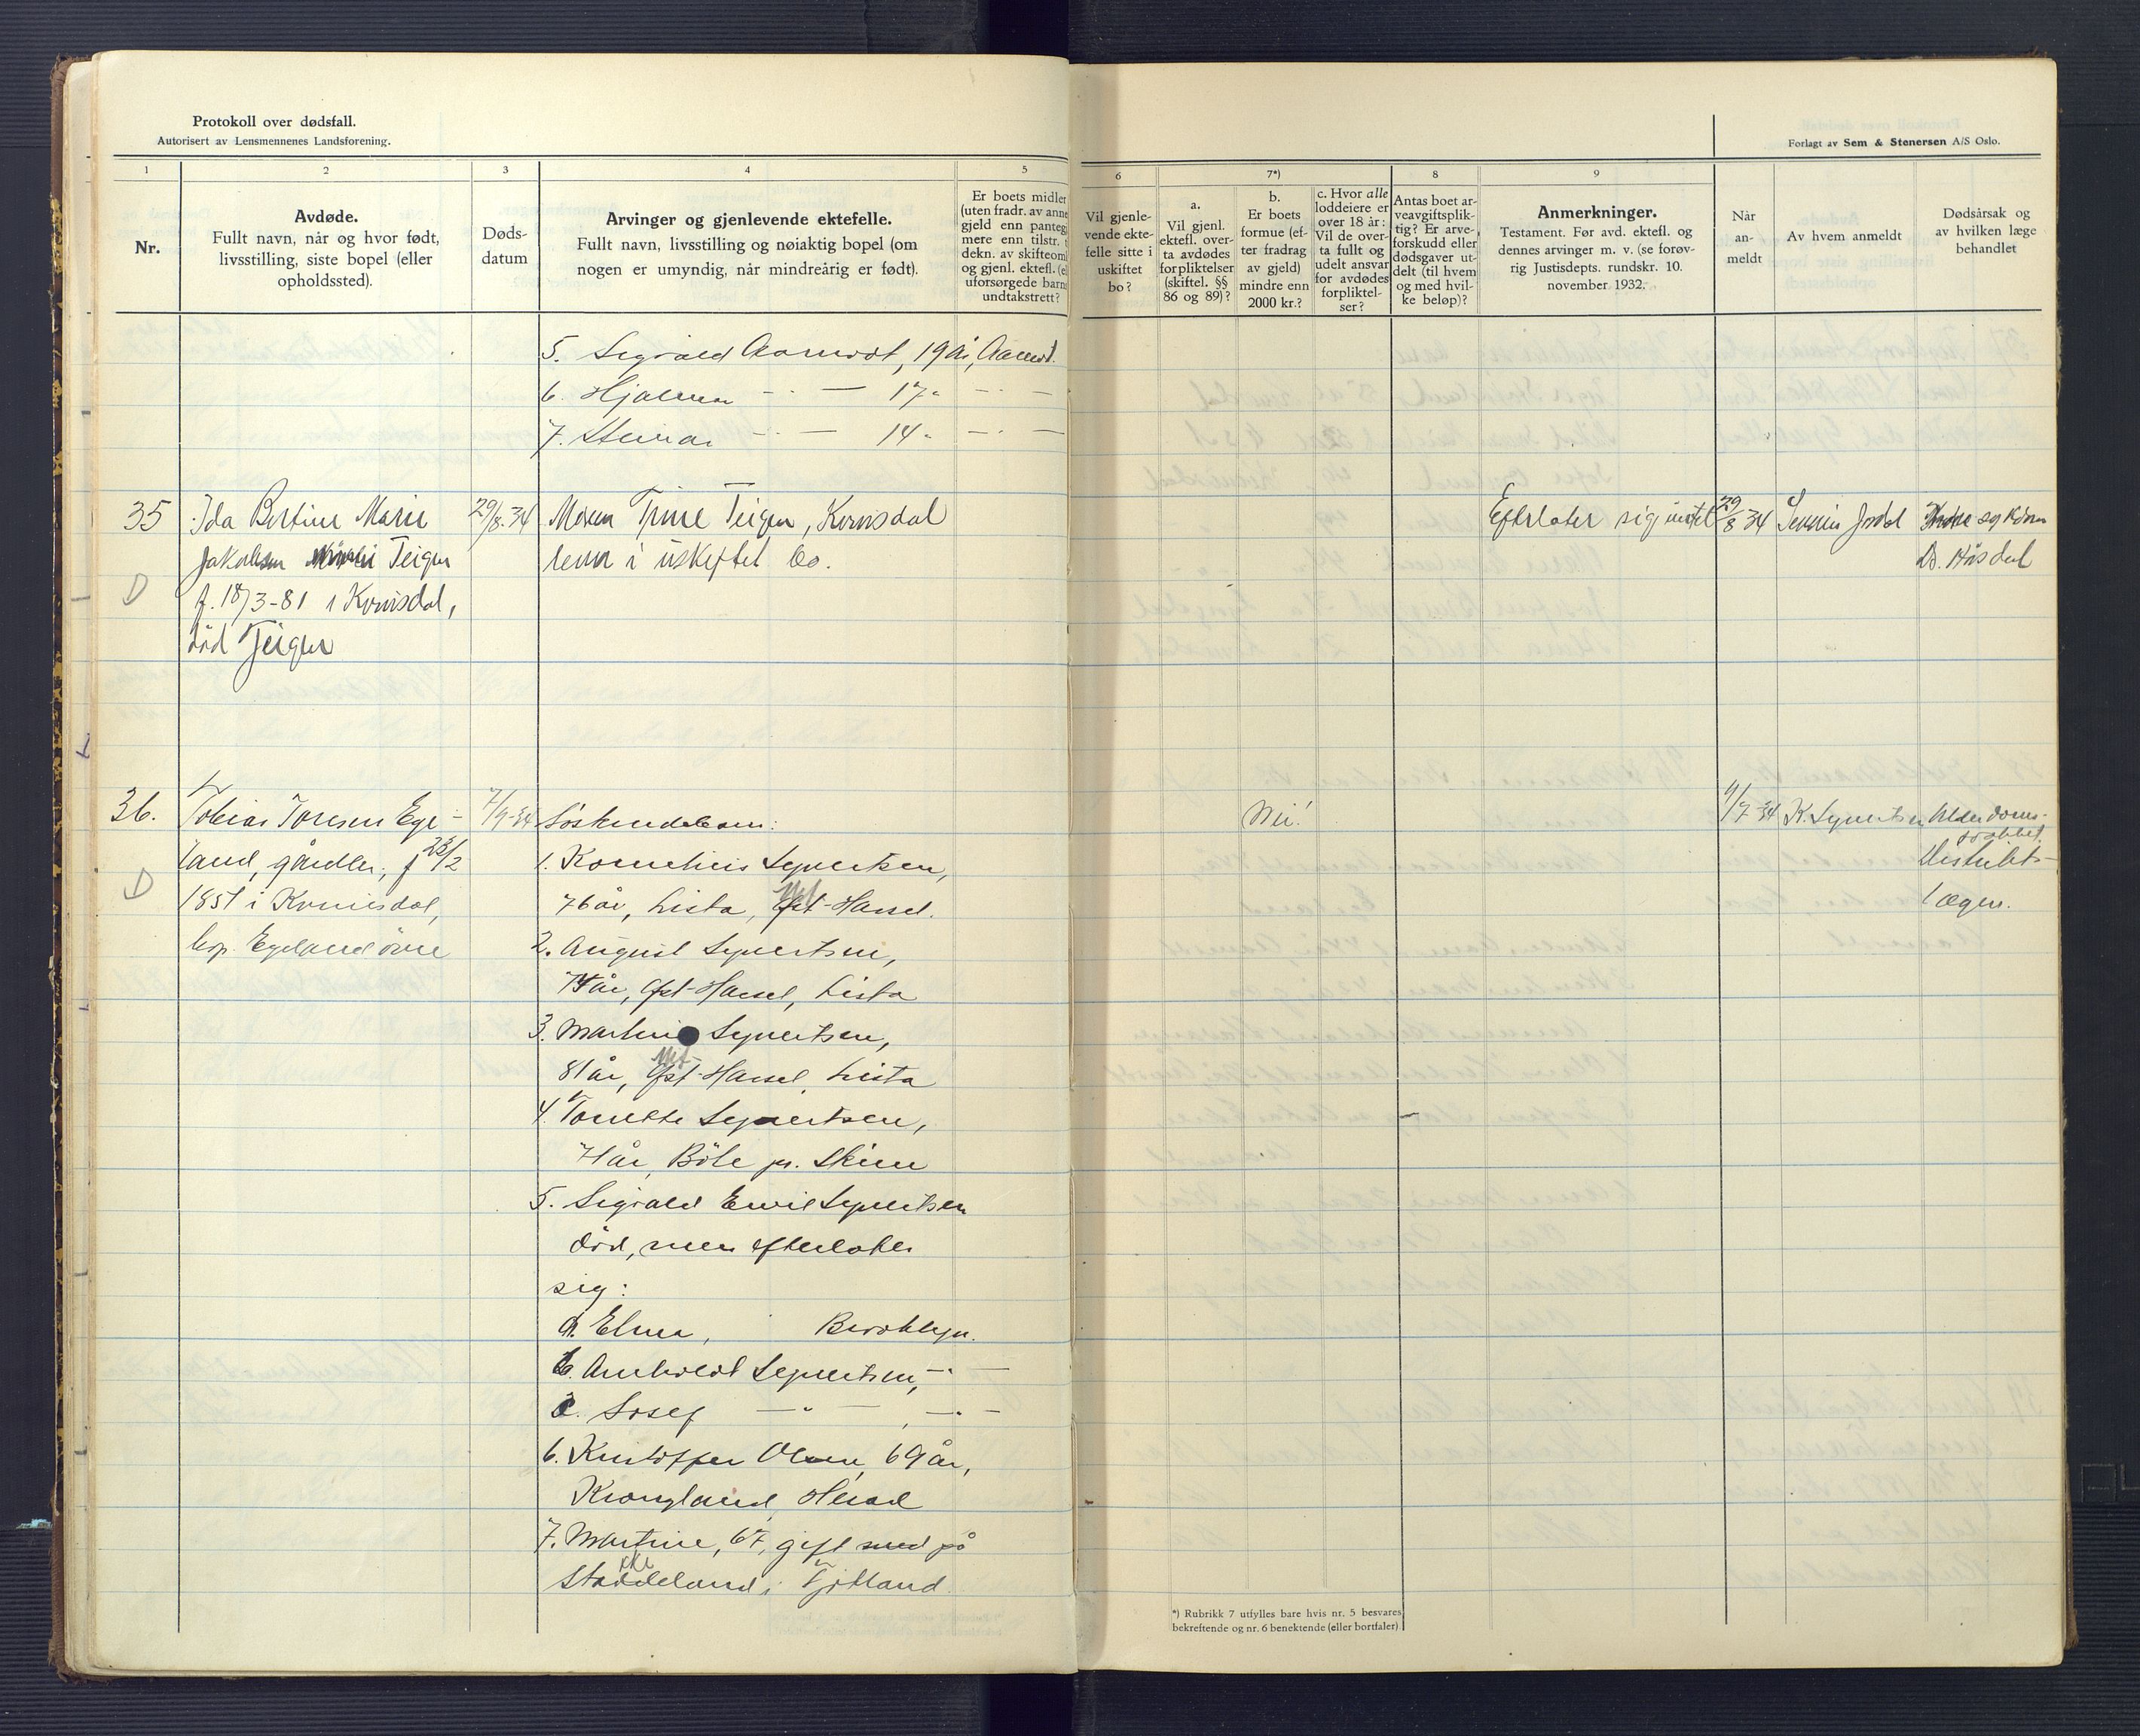 Protokoll over dødsfall.
Autorisert av Lensmennenes Landsforening.
Forlagt av Sem & Stenersen A/S Oslo.
1 2 3 4 5 6 7*) 8 9
Nr.
Avdøde.
Fullt navn, når og hvor født,
livsstilling, siste bopel (eller
opholdssted).
Døds-
datum
Arvinger og gjenlevende ektefelle.
Fullt navn, livsstilling og nøiaktig bopel (om
nogen er umyndig, når mindreårig er født).
Er boets midler
(uten fradr. av anne
gjeld enn panteg
mere enn tilstr. t
dekn. av skifteom
og gjenl. ektefl. (e
uforsørgede barn
undtakstrett?
Vil gjenle-
vende ekte-
felle sitte i
uskiftet
bo?
a.
Vil gjenl.
ektefl. over-
ta avdødes
forpliktelser
(skiftel. §§
86 og 89)?
b.
Er boets
formue (ef-
ter fradrag
av gjeld)
mindre enn
2000 kr.?
c. Hvor alle
loddeiere er
over 18 år:
Vil de over-
ta fullt og
udelt ansvar
for avdødes
forpliktel-
ser?
Antas boet ar-
veavgiftsplik-
tig? Er arve-
forskudd eller
dødsgaver ut-
delt (til hvem
og med hvil-
ke beløp)?
Anmerkninger.
Testament. Før avd. ektefl. og
dennes arvinger m. v. (se forøv-
rig Justisdepts. rundskr. 10.
november 1932.
Når
an-
meldt
Av hvem anmeldt
Dødsårsak og
av hvilken læge
behandlet
5. Sigvald Aamodt, 19 år, Aamot.
6. Hjalmar —"— 17" —"—
7. Steinar —"— 14" —"—
35 Ida Bertine Marie 29/8-34 Moren Trine Teigen, Kvinsdal Efterlater sig intet 29/8 34
Jakobsen Teigen
f. 18/3-81 i Kvinsdal,
død Teigen
i uskiftet bo.
Dr. Håsdal
D
36. Tobias Toresen Ege- 7/9-34 Søskendebarn: Nei! 9/7 34 K. Syvertsen Alderdoms-
land, gårdbr., f 23/2
1851 i Kvinisdal,
bop. Egeland øvre
D
Distrikts-
lægen.
1. Kornelius Syvertsen,
76 år, Lista, Øst-Hassel.
2. August Syvertsen,
år, Øst-Hassel, Lista
3. Martin Syvertsen,
81 år, Øst-Hassel, Lista
4. Tomette Syvertsen,
71 år, Böle pr. Skien
5. Sigvald Emil Syvertsen
död, men efterlater
sig:
a. Elma, Brooklyn.
b. Arnholdt Syvertsen, —"—
c. Josef —"— , —"—
6. Kristoffer Olsen, 69 år,
Krongland, Herad
7. Martine, 67, gift på
Støkkeland i Fjotland
*) Rubrikk 7 utfylles bare hvis nr. 5 besvares
bekreftende og nr. 6 benektende (eller bortfaler)